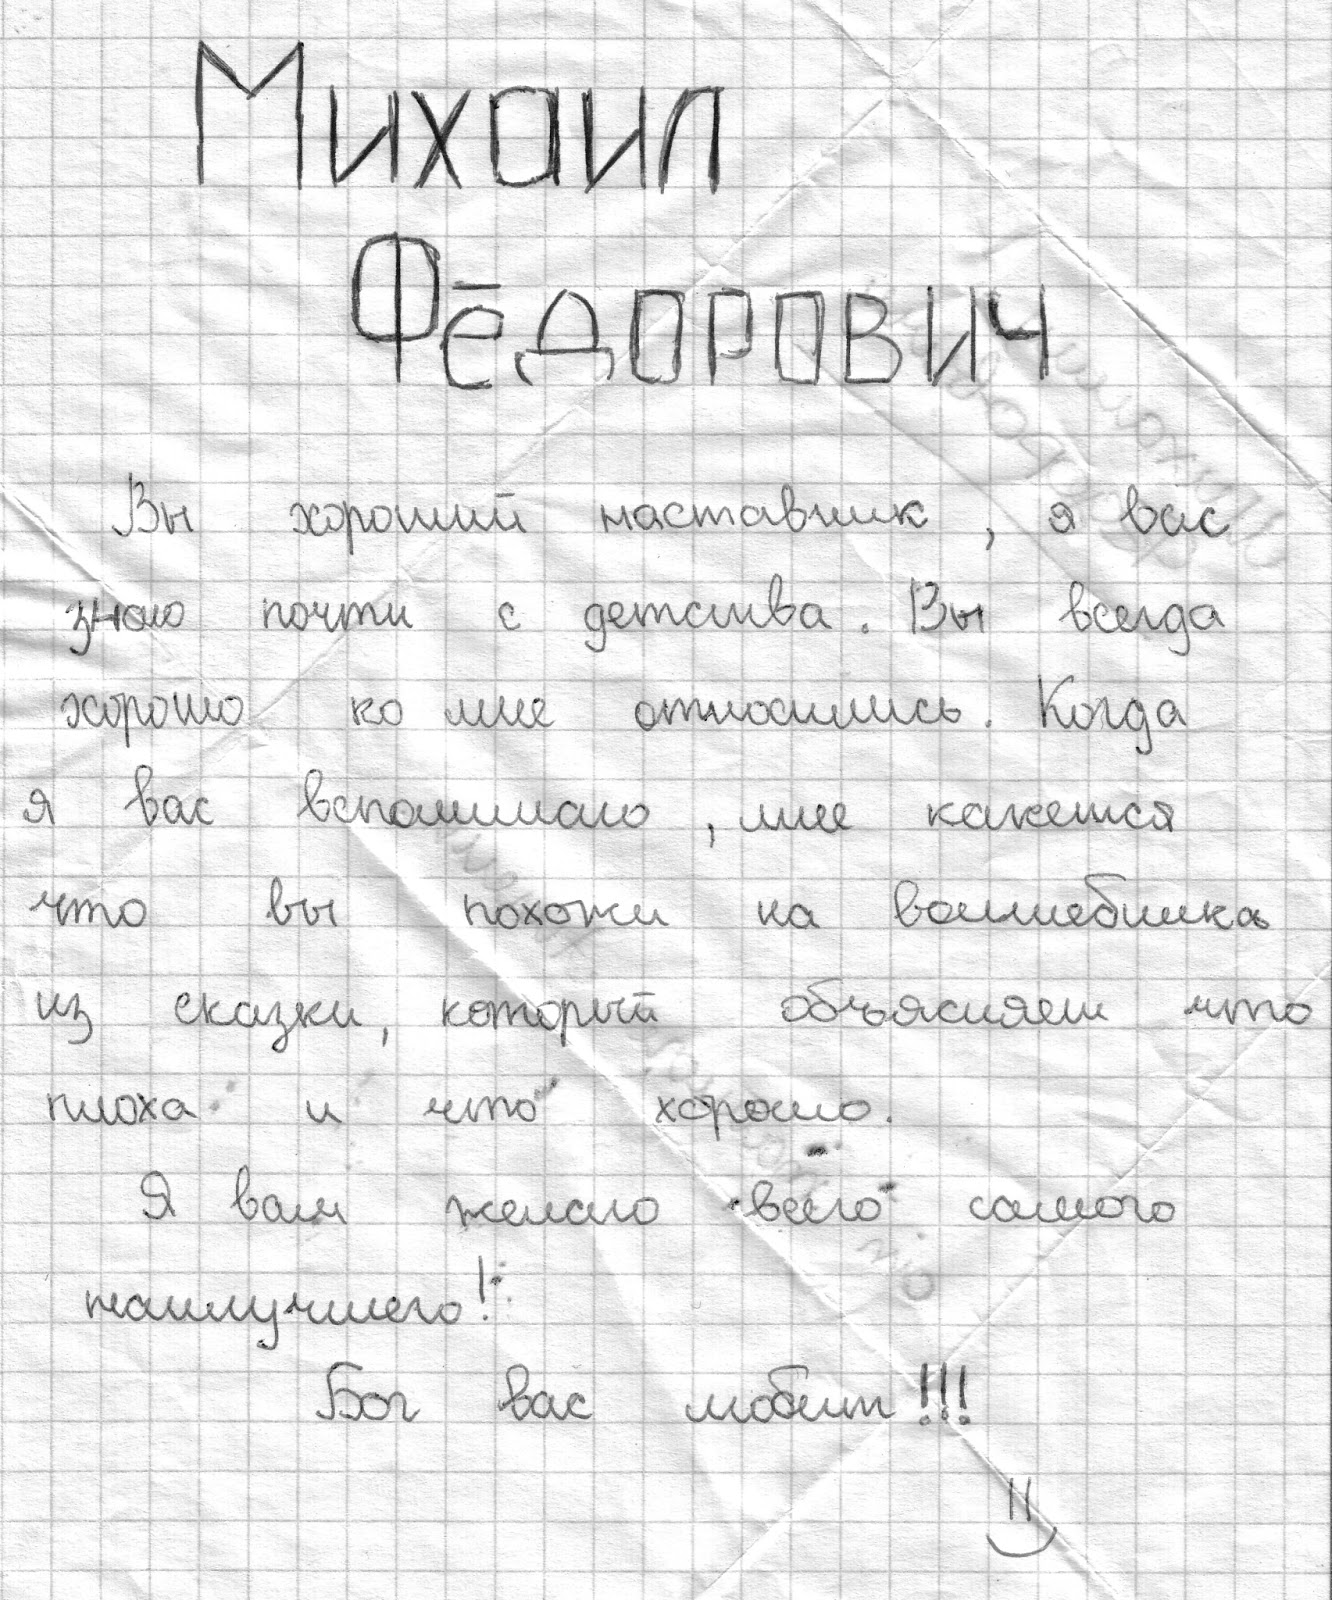 Михаил
Фёдорович
Вы хороший наставник, я вас
знаю почти с детства. Вы всегда
хорошо ко мне относились. Когда
я вас вспоминаю, мне кажется
что вы похожи на волшебника
из сказки, который объясняет что
плоха и что хорошо.
Я вам желаю всего самого
наилучшего!
Бог вас любит!!!